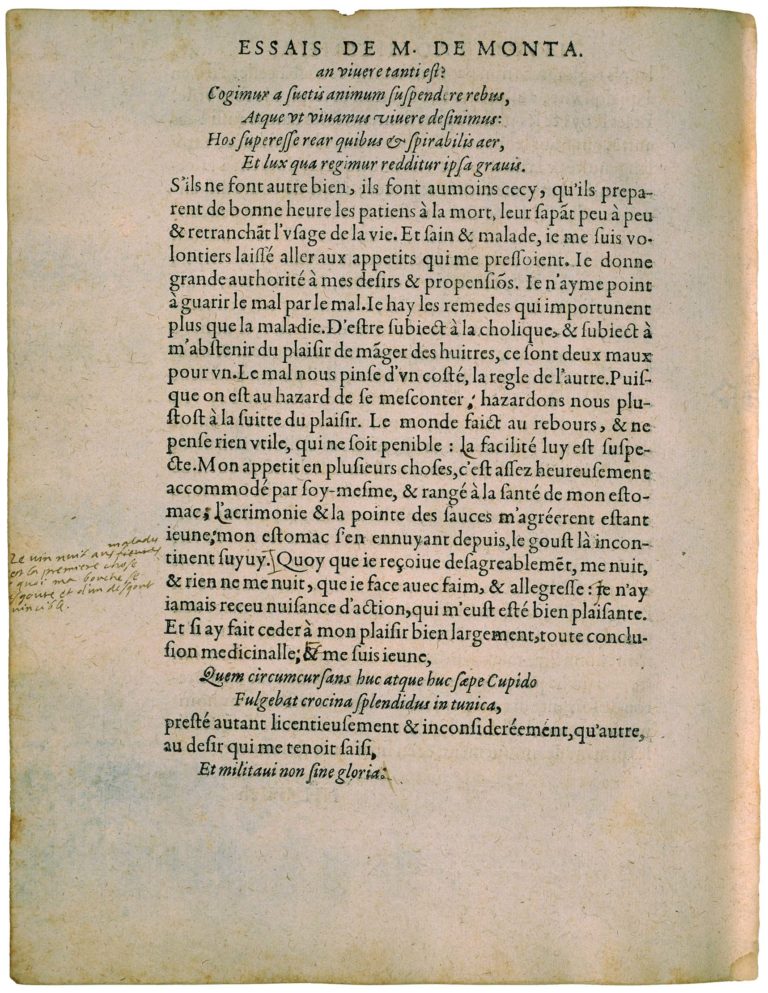 ESSAIS DE M. DE MONTA.
an viuere tanti eſt?
Cogimur a ſuetis animum ſuſpendere rebus,
Atque vt viuamus viuere deſinimus:
Hos ſupereſſe rear quibus & ſpirabilis aer,
Et lux qua regimur redditur ipſa grauis.
S'ils ne font autre bien, ils font aumoins cecy, qu'ils prepa-
rent de bonne heure les patiens à la mort, leur ſapãt peu à peu
& retranchãt l'vſage de la vie. Et ſain & malade, ie me ſuis vo-
lontiers laiſſé aller aux appetits qui me preſſoient. Ie donne
grande authorité à mes deſirs & propenſiõs. Ie n'ayme point
à guarir le mal par le mal. Ie hay les remedes qui importunent
plus que la maladie. D'eſtre ſubiect à la cholique, & ſubiect à
m'abſtenir du plaiſir de mãger des huitres, ce ſont deux maux
pour vn. Le mal nous pinſe d'vn coſté, la regle de l'autre. Puiſ-
que on eſt au hazard de ſe meſconter; hazardons nous plu-
ſtoſt à la ſuitte du plaiſir. Le monde faict au rebours, & ne
penſe rien vtile, qui ne ſoit penible : la facilité luy eſt ſuſpe-
cte. Mon appetit en pluſieurs choſes, c'eſt aſſez heureuſement
accommodé par ſoy-meſme, & rangé à la ſanté de mon eſto-
mac; L'acrimonie & la pointe des ſauces m'agréerent eſtant
ieune; mon eſtomac s'en ennuyant depuis, le gouſt là incon-
malades
Le vin nuit aus fieures
est la premiere chose
a quoi ma bouche se
et d'un degout
inuincible.
tinent ſuyuy. Quoy que ie reçoiue deſagreablemẽt, me nuit,
& rien ne me nuit, que ie face auec faim, & allegreſſe : ie n'ay
iamais receu nuiſance d'action, qui m'euſt eſté bien plaiſante.
Et ſi ay fait ceder à mon plaiſir bien largement, toute conclu-
ſion medicinalle; & me ſuis ieune,
Quem circumcurſans huc atque huc ſæpe Cupido
Fulgebat crocina ſplendidus in tunica,
preſté autant licentieuſement & inconſideréement, qu'autre,
au deſir qui me tenoit ſaiſi,
Et militaui non ſine gloria.